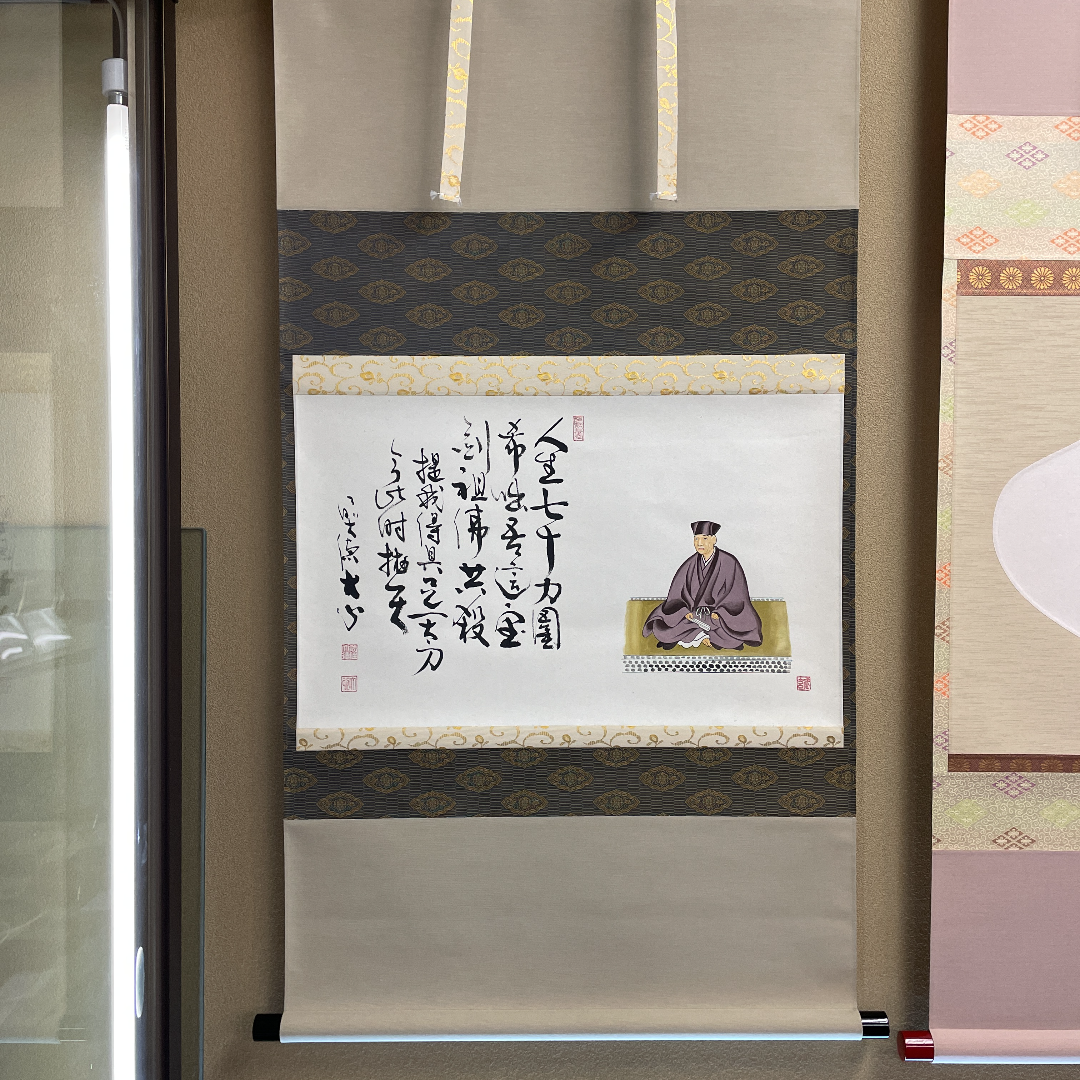 人生七十力圍
希咄吾這宝
剣祖佛共殺
提我得具足一太刀
今此时抛天